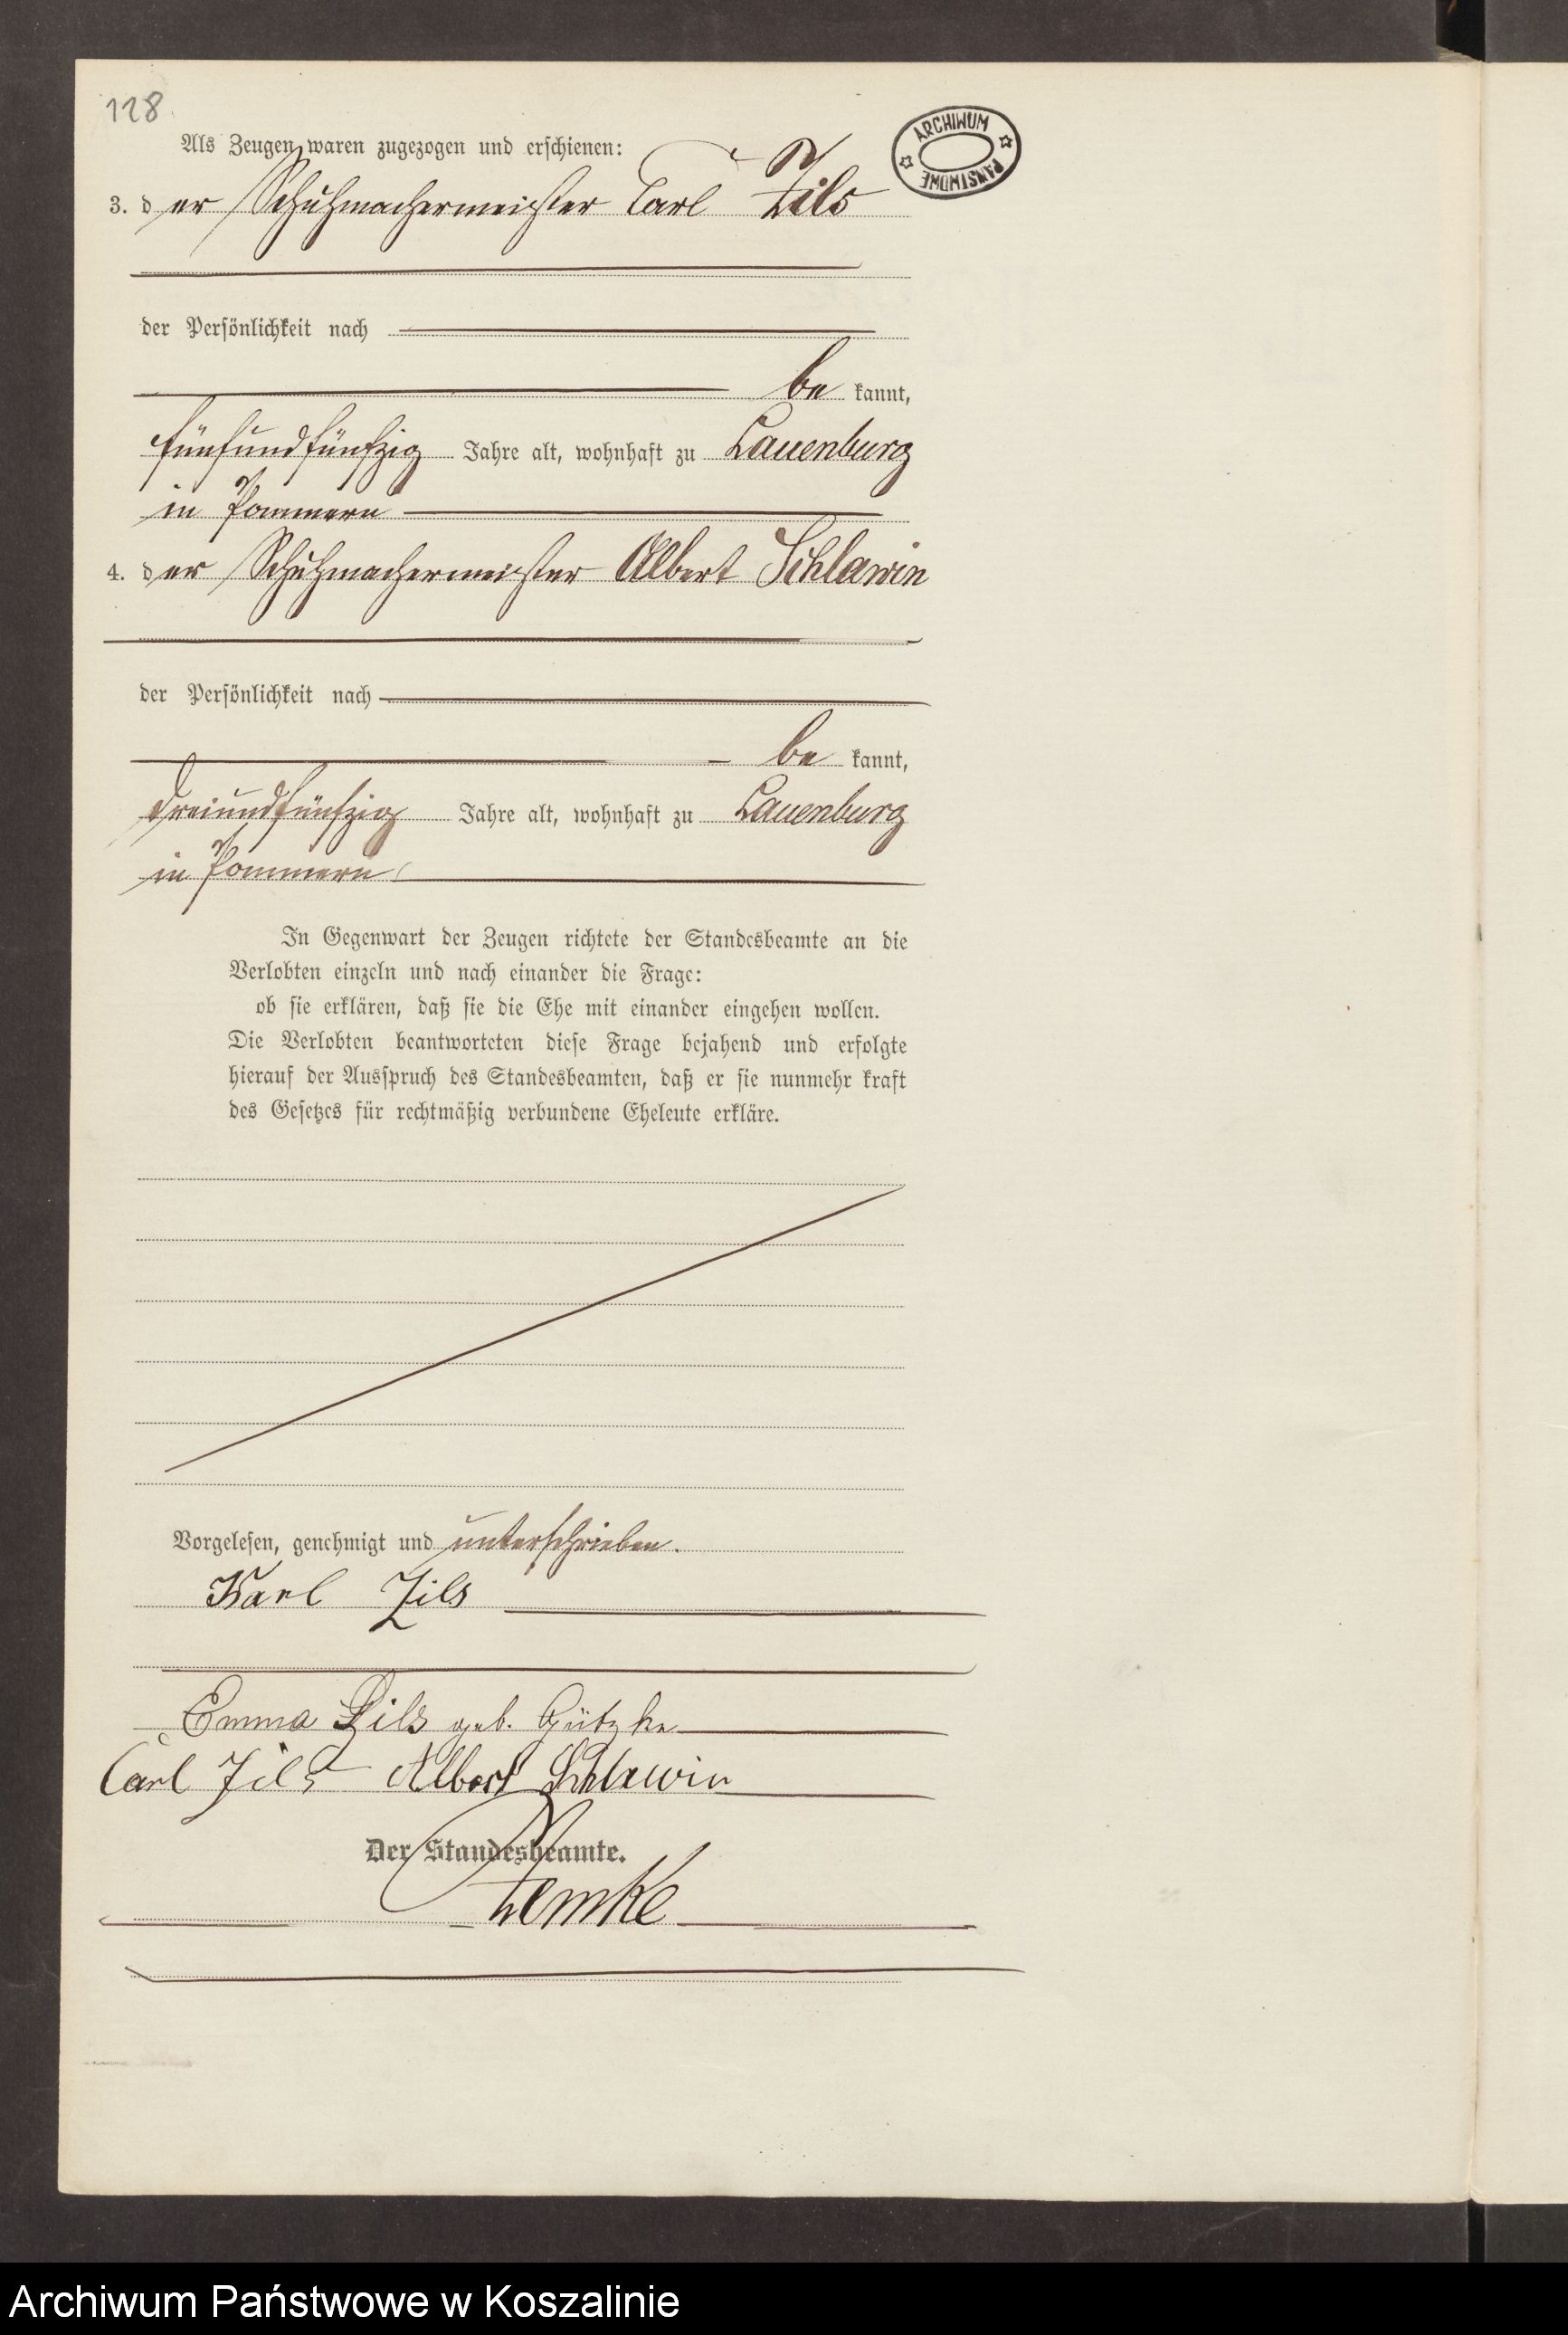 128
ARCHIWUM PAŃSTWOWE
Als Zeugen waren zugezogen und erschienen:
3. der Schuhmachermeister Carl Zils
der Persönlichkeit nach
be kannt,
fünfundfünfzig Jahre alt, wohnhaft zu Lauenburg
in Pommern
4. der Schuhmachermeister Albert Schlawin
der Persönlichkeit nach
be kannt,
dreiundfünfzig Jahre alt, wohnhaft zu Lauenburg
in Pommern
In Gegenwart der Zeugen richtete der Standesbeamte an die
Verlobten einzeln und nach einander die Frage:
ob sie erklären, daß sie die Ehe mit einander eingehen wollen.
Die Verlobten beantworteten diese Frage bejahend und erfolgte
hierauf der Ausspruch des Standesbeamten, daß er sie nunmehr kraft
des Gesetzes für rechtmäßig verbundene Eheleute erkläre.
Vorgelesen, genehmigt und unterschrieben.
Karl Zils
Emma Zils geb. Gützke
Carl Zils Albert Schlawin
Der Standesbeamte.
Zemke
Archiwum Państwowe w Koszalinie